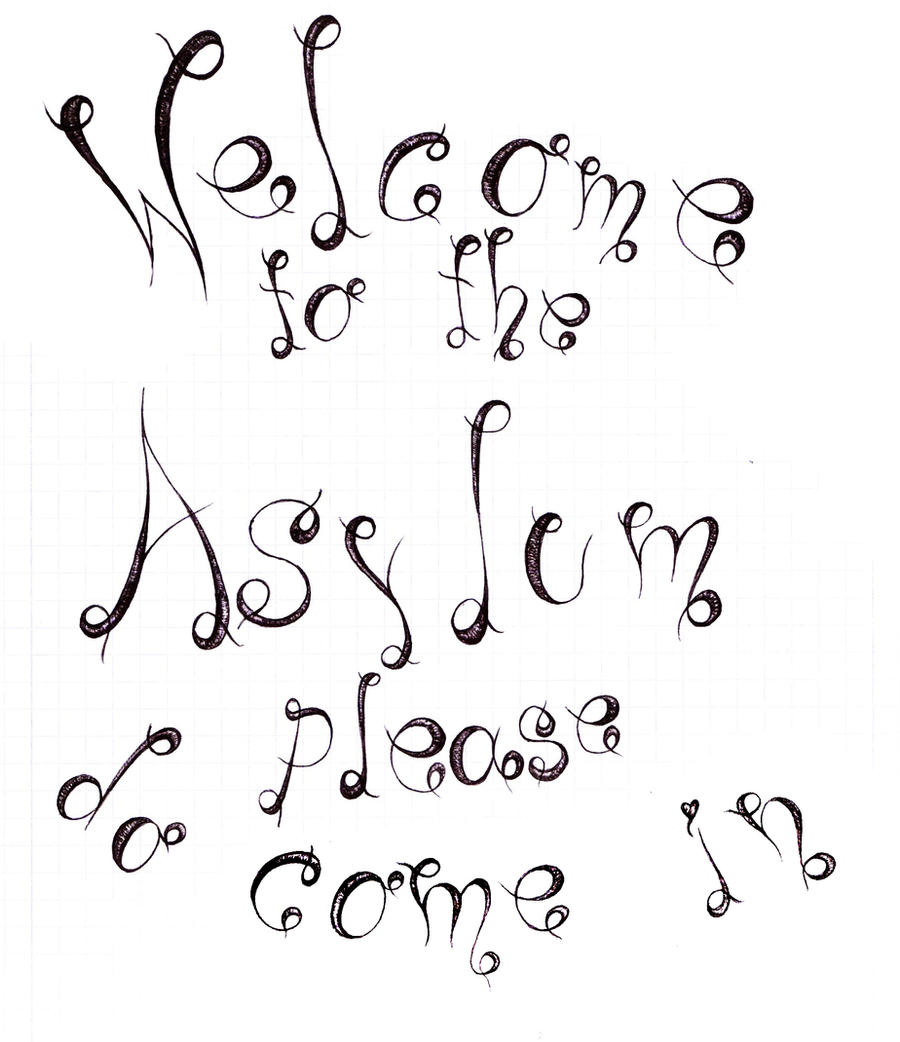 Welcome
to the
Asylum
do please
come in